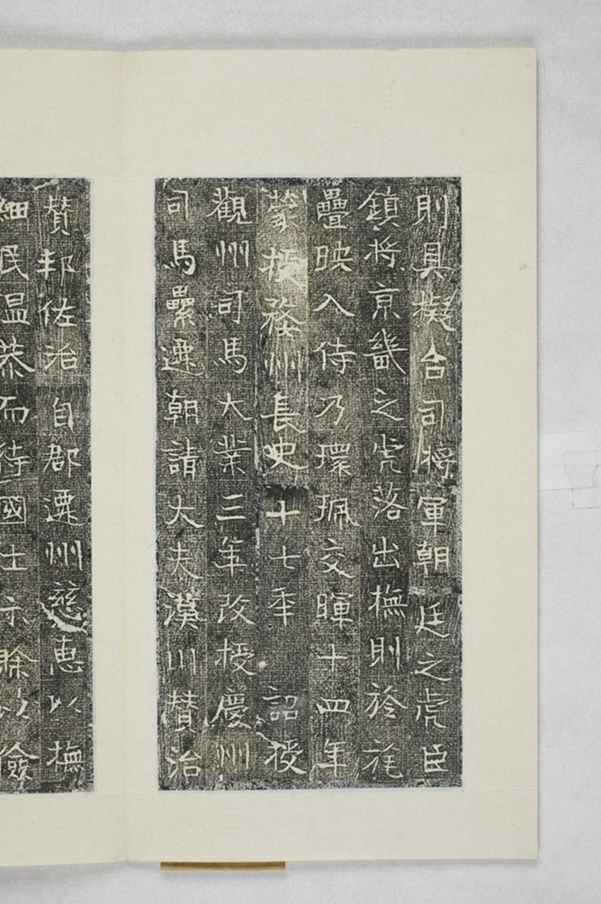 則具擬台司將軍朝廷之虎臣
鎮将京畿之虎落出撫則旍旄
疊映入侍乃環珮交暉十四年
蒙授婺州長史十七年 詔授
觀州司馬大業三年改授慶州
司馬纍遷朝請大夫漢川賛治
賛邦佐治自郡遷州慈惠以撫
細民温恭而待國士示賒以儉